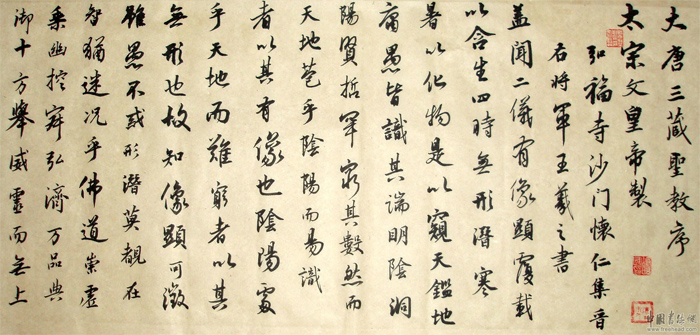 大唐三藏聖教序
太宗文皇帝製
弘福寺沙门懷仁集晉
右將軍王羲之書
盖聞二儀有像顯覆載
以含生四時無形潛寒
暑以化物是以窺天鑑地
庸愚皆識其端明陰洞
陽賢哲罕窮其數然而
天地苞乎陰陽而易識
者以其有像也陰陽處
乎天地而難窮者以其
無形也故知像顯可徵
雖愚不惑形潛莫覩在
智猶迷况乎佛道崇虛
乘幽控寂弘濟万品典
御十方舉威靈而無上